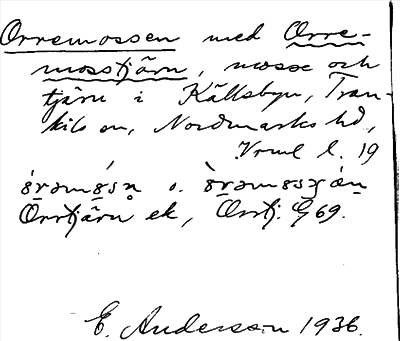 Orremossen med Orre-
mosstjärn, mosse och
tjärn i Källsbyn, Tran-
kils sn, Nordmarks hd,
Vrml l. 19
o.
Orrtjärn ek, Orrtj. G 69.
E. Andersson 1936.